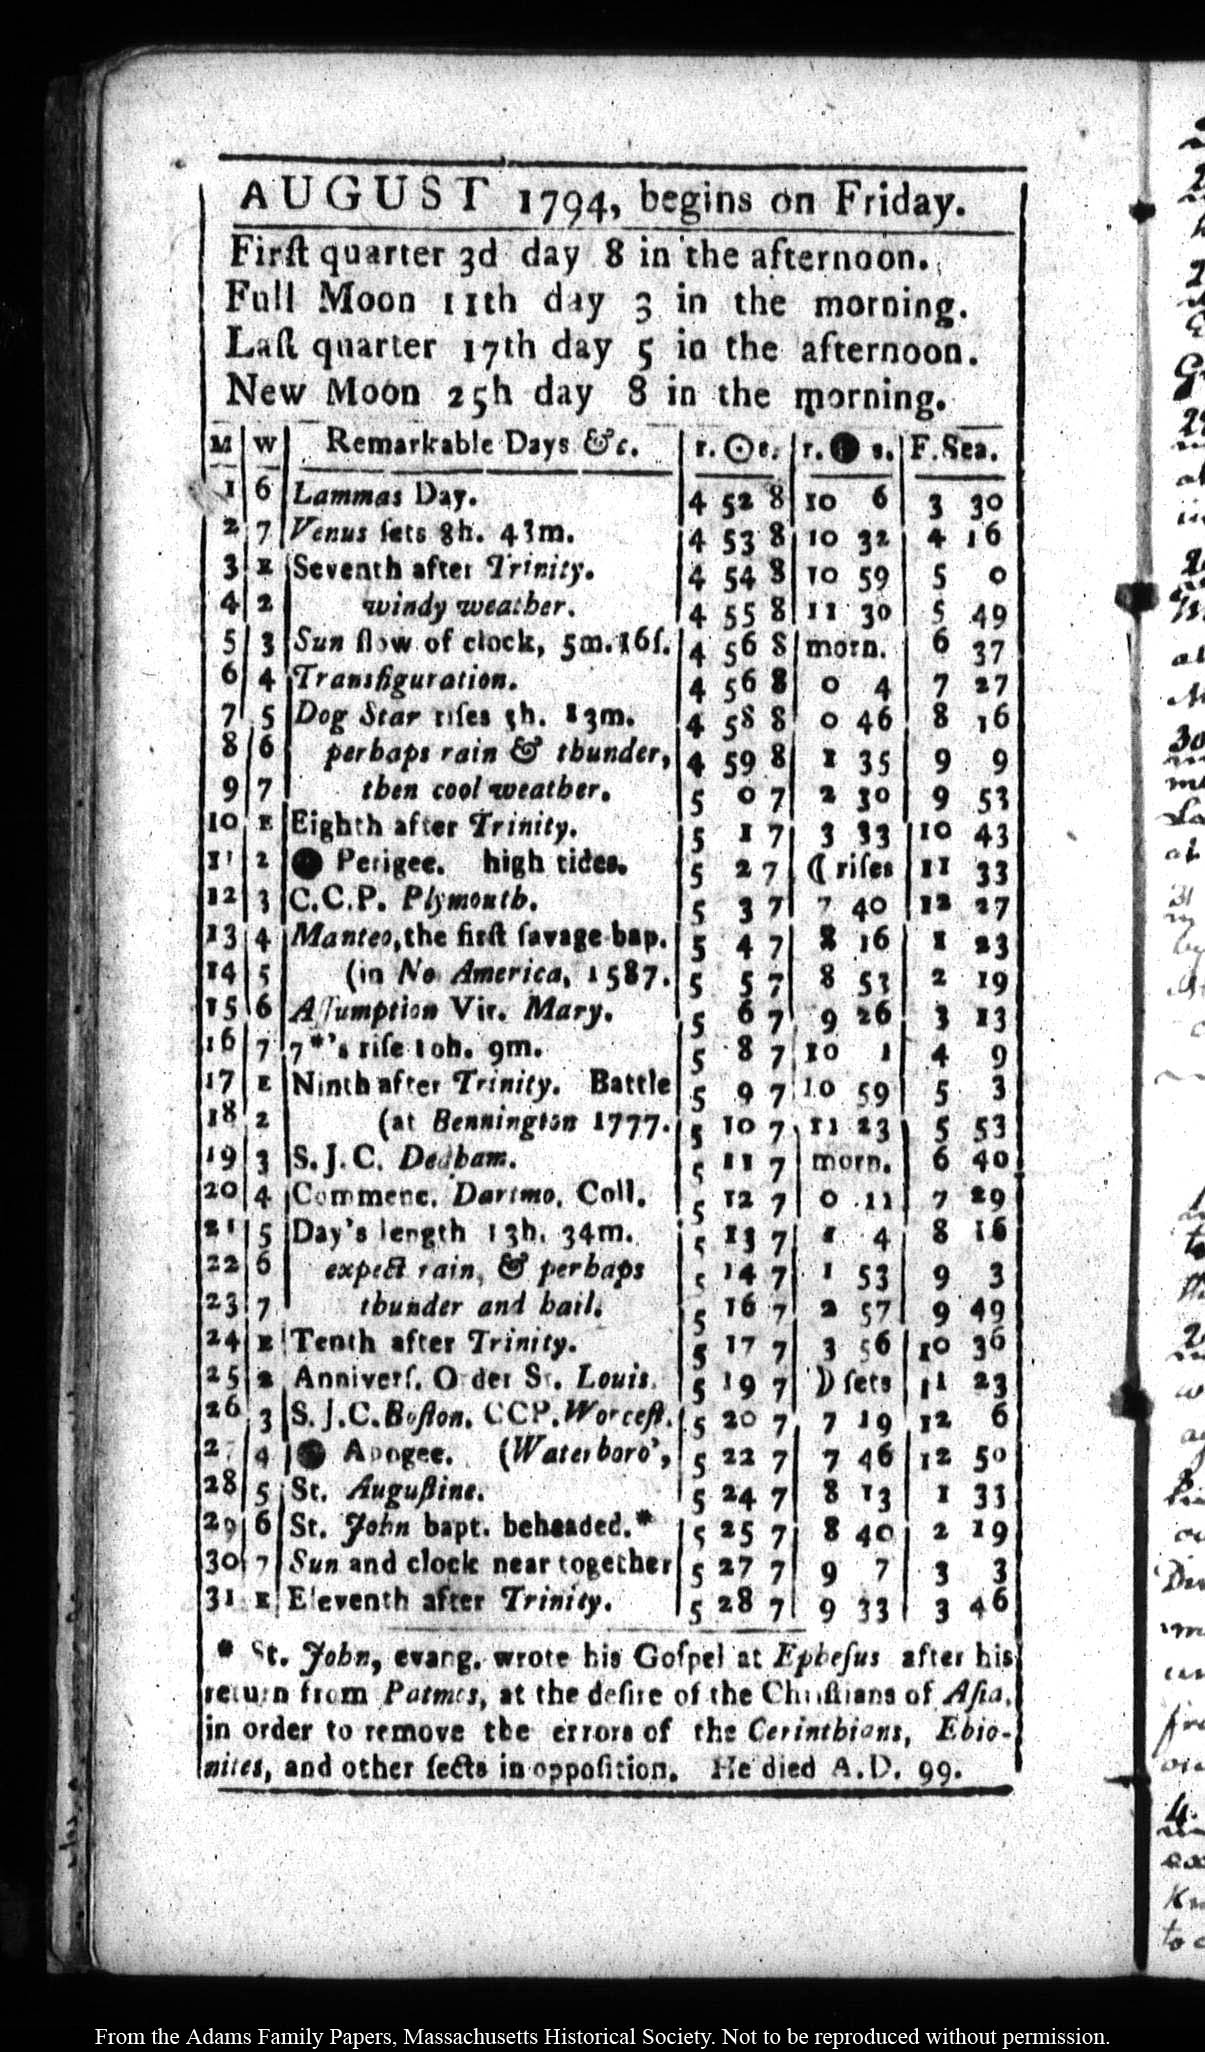 AUGUST 1794, begins on Friday.
Firſt quarter 3d day 8 in the afternoon.
Full Moon 11th day 3 in the morning.
Laſt quarter 17th day 5 in the afternoon.
New Moon 25h day 8 in the morning.
M W Remarkable Days &c. r. ☉ s. r. ● s. F. Sea.
1 6 Lammas Day. 4 52 8 10 6 3 30
2 7 Venus ſets 8h. 43m. 4 53 8 10 32 4 16
3 E Seventh after Trinity. 4 54 8 10 59 5 0
4 2 windy weather. 4 55 8 11 30 5 49
5 3 Sun ſlow of clock, 5m. 16ſ. 4 56 8 morn. 6 37
6 4 Transfiguration. 4 56 8 0 4 7 27
7 5 Dog Star riſes 3h. 13m. 4 58 8 0 46 8 16
8 6 perhaps rain & thunder, 4 59 8 1 35 9 9
9 7 then cool weather. 5 0 7 2 30 9 53
10 E Eighth after Trinity. 5 1 7 3 33 10 43
11 2 ● Perigee. high tides. 5 2 7 ☾ riſes 11 33
12 3 C.C.P. Plymouth. 5 3 7 7 40 12 27
13 4 Manteo, the firſt ſavage bap. 5 4 7 8 16 1 23
14 5 (in No America, 1587. 5 5 7 8 53 2 19
15 6 Aſſumption Vir. Mary. 5 6 7 9 26 3 13
16 7 7*'s riſe 10h. 9m. 5 8 7 10 1 4 9
17 E Ninth after Trinity. Battle 5 9 7 10 59 5 3
18 2 (at Bennington 1777. 5 10 7 11 23 5 53
19 3 S.J.C. Dedham. 5 11 7 morn. 6 40
20 4 Commenc. Dartmo. Coll. 5 12 7 0 11 7 29
21 5 Day's length 13h. 34m. 5 13 7 1 4 8 16
22 6 expect rain, & perhaps 5 14 7 1 53 9 3
23 7 thunder and hail. 5 16 7 2 57 9 49
24 E Tenth after Trinity. 5 17 7 3 56 10 36
25 2 Anniverſ. Order St. Louis. 5 19 7 ☽ ſets 11 23
26 3 S.J.C. Boſton. CCP. Worceſt. 5 20 7 7 19 12 6
27 4 ● Apogee. (Waterboro', 5 22 7 7 46 12 50
28 5 St. Auguſtine. 5 24 7 8 13 1 33
29 6 St. John bapt. beheaded.* 5 25 7 8 40 2 19
30 7 Sun and clock near together 5 27 7 9 7 3 3
31 E Eleventh after Trinity. 5 28 7 9 33 3 46
* St. John, evang. wrote his Goſpel at Epheſus after his
return from Patmos, at the deſire of the Chriſtians of Aſia,
in order to remove the errors of the Cerinthians, Ebio-
nites, and other ſects in oppoſition. He died A.D. 99.
From the Adams Family Papers, Massachusetts Historical Society. Not to be reproduced without permission.